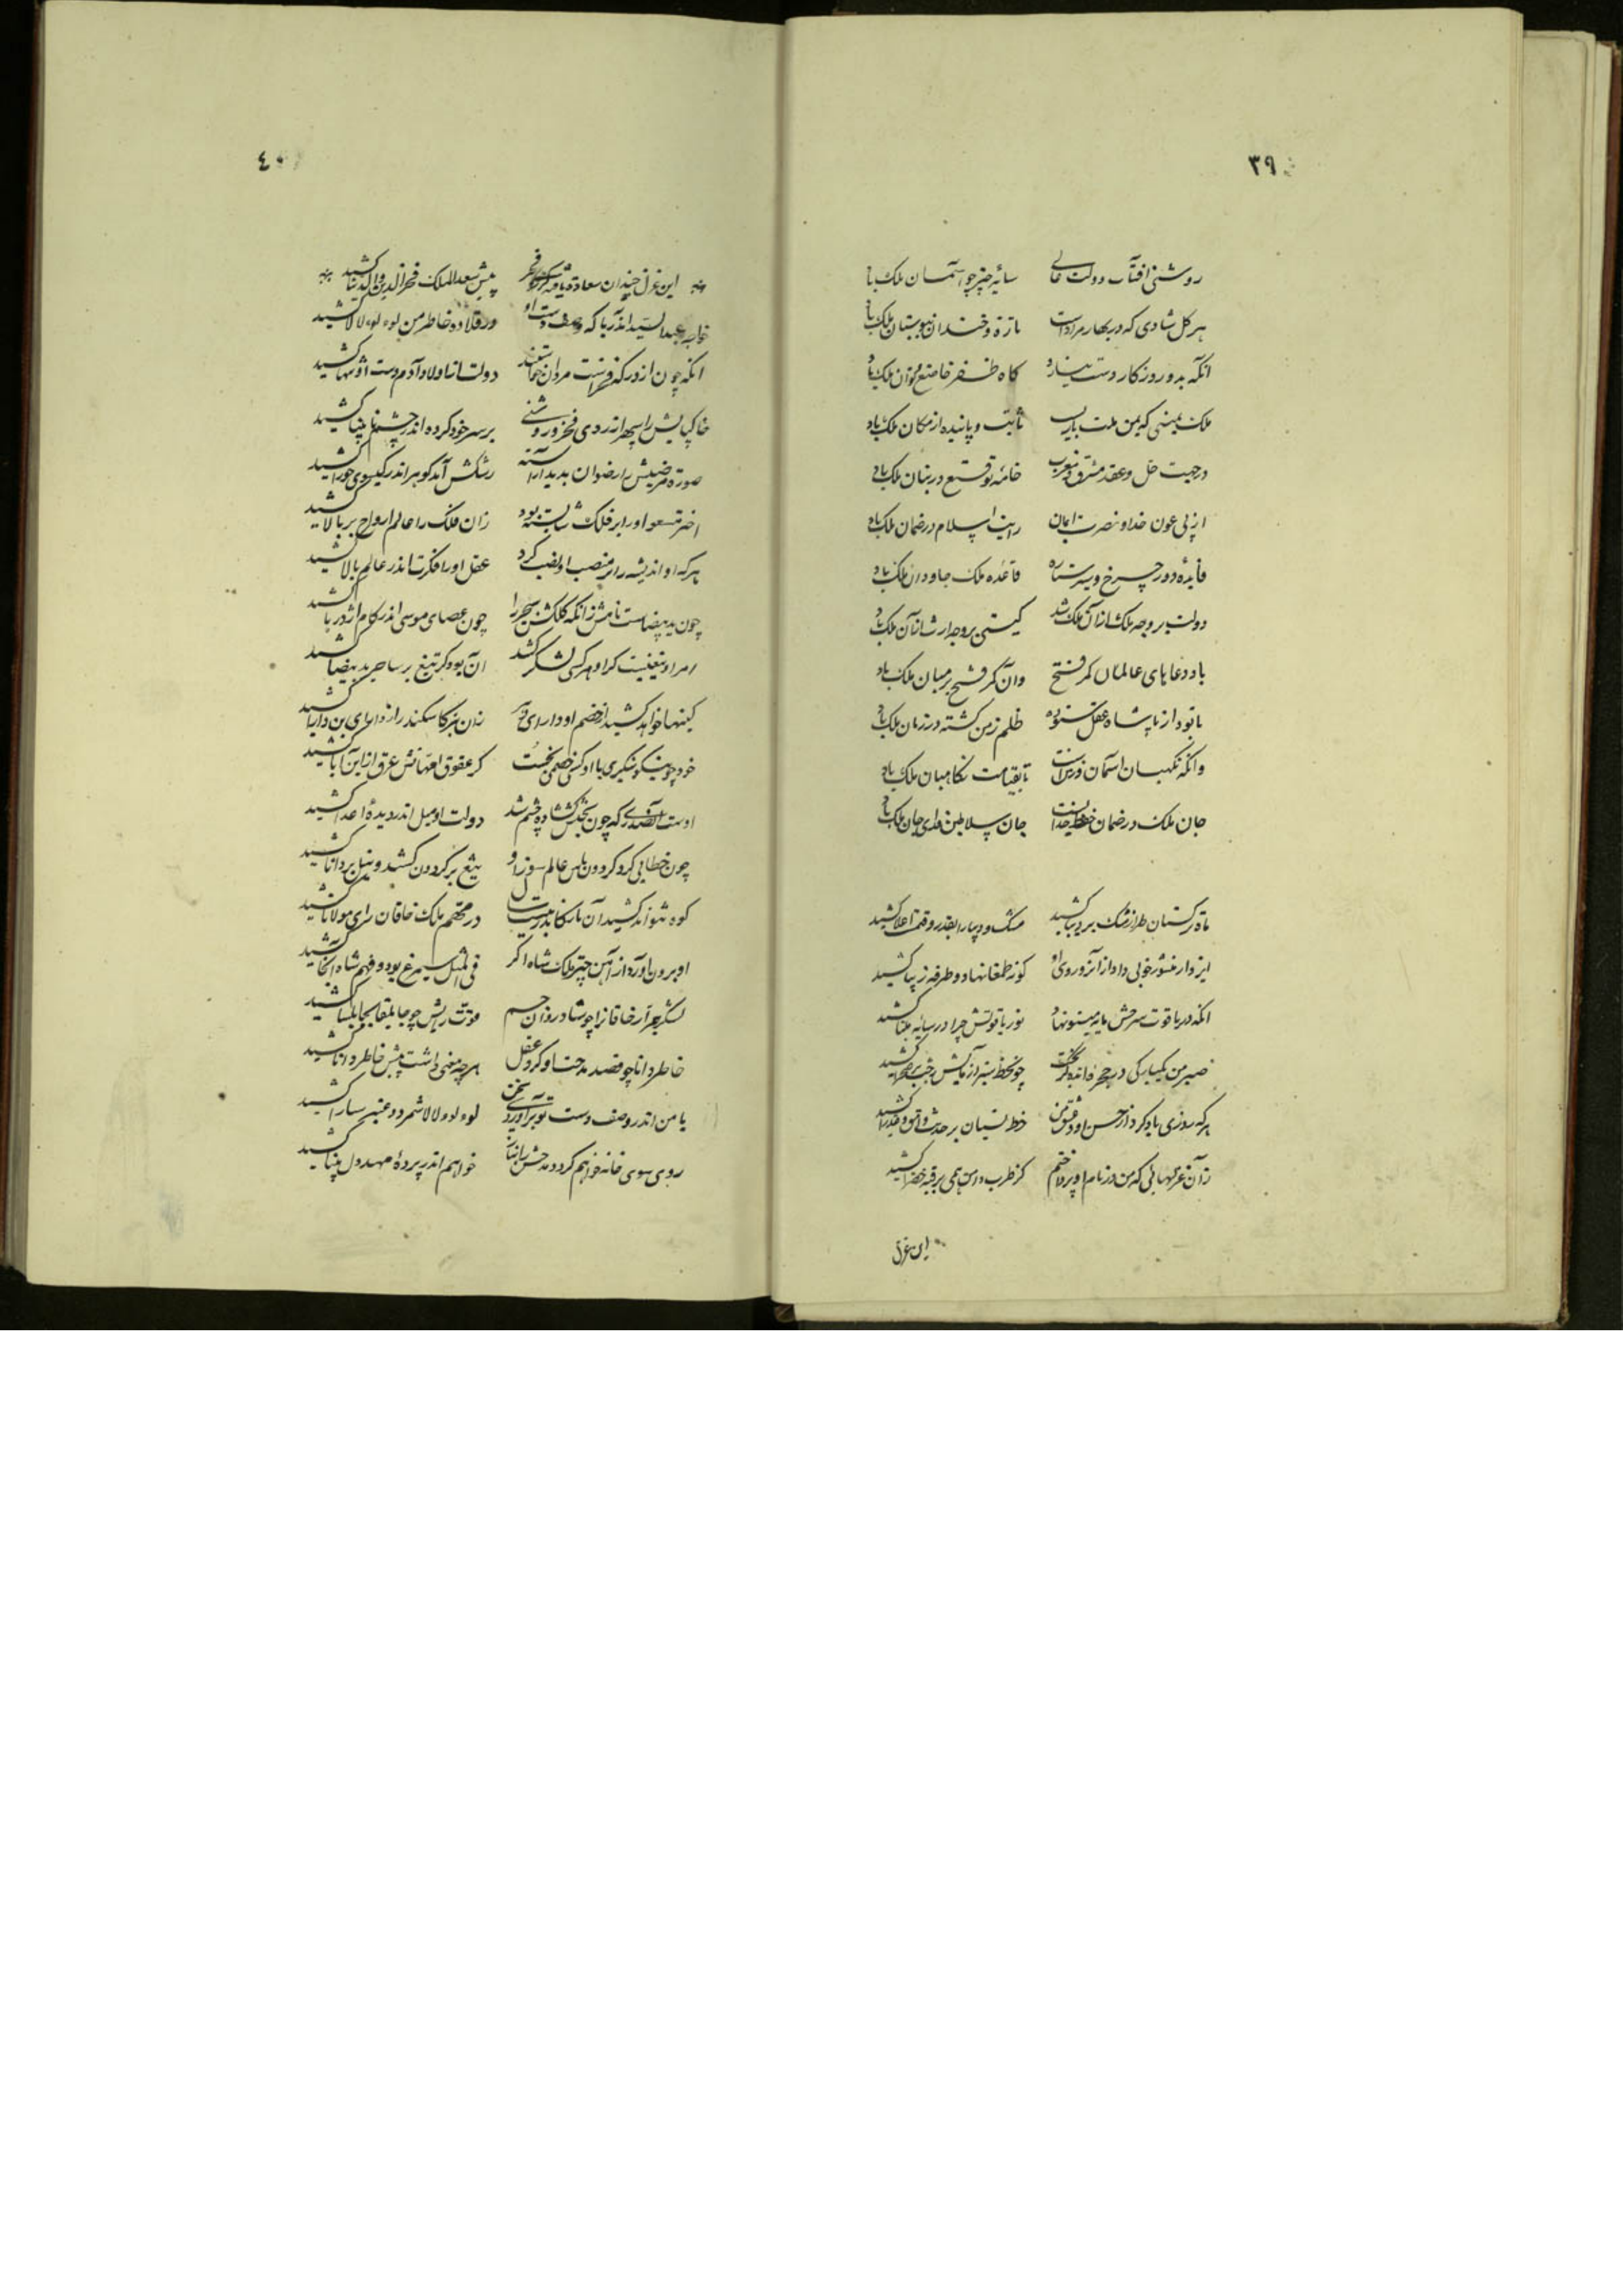 ۳۹
روشنی افتاب دولت عالی سایه چتر چو آسمان ملک باد
هر کل شادی که در بهار مراد است تازه و خندان ببوستان ملک باد
انکه بدو روزکار دست نیازد کاه ظفر خاضع ملک باد
ملک یمینی که یمن ملت یارب ثابت و پاینده از مکان ملک باد
در جهت حل و عقد مشرق و مغرب خامه توقیع در بنان ملک باد
از پی عون خدا و نصرت ایمان رایت اسلام در ضمان ملک باد
فایده دور چرخ و سیر ستاره قاعده ملک جاودان ملک باد
دولت بر وجه ملک از آن ملک شد کیتی بر وجه ارث از آن ملک باد
باد دعاهای عالمان کمر فتح وان کمر فتح بر میان ملک باد
تا بود از پادشاه عقل ستوده ظلم زمن کشته در زمان ملک باد
وانکه نکهبان اسمان و زمین است تا بقیامت نکاهبان ملک باد
جان ملک در ضمان حفظ خدا است جان سلاطین فدای جان ملک باد
ماه ترکستان طراز مشک بر دیبا کشید مشک و دیبا را بقدر و قیمت اعلا کشید
ایزد ار منشور خوبی داد از آنرو روی او کونه طغرا نهاد و طرفه زیبا کشید
انکه در یاقوت سرخش مایه مینو نهاد نور یاقوتش چرا در سایه مینا کشید
صبر من یکبارکی در حجره اندیشه کریخت چون خط سبز از نمایش رخت بر صحرا کشید
هر که روزی یاد کرد از حسن او و عشق من خط نسیان بر حدیث وامق و عذرا کشید
زان غزلهائی که من در نام او پرداختم کز طرب دامن همی بر قبه خضرا کشید
این غزل
٤۰
این غزل چندان سعادة یافت پیش سعد الملک فخر الدین والدنیا کشید
خواجه عبد السید اندریا که وصف دست او در قلاده خاطر من لوءلوءلالا کشید
انکه چون از در دولت از اولاد آدم دست او تنها کشید
خاکپایش را سپهر اندر دی فخر و روشنی بر سر خود کرده اندر چشم نابینا کشید
صورة را رضوان بدید آراسته رشکش آمد کوهر اندر کیسوی حورا کشید
اختر مسعود او را بر فلک شایسته بود زان فلک را عالم ارواح بر بالا کشید
هر که او اندیشه را بر منصب او نصب کرد عقل او را فکرت اندر عالم بالا کشید
چون ید بیضاست نامش زانکه کلکش سحر را چون عصای موسی اندر کام اژدرها کشید
لشکر کشد ان بود کز تیغ بر ساحر ید بیضا کشید
کینها خواهد کشید از خصم او دارای زان بتر کاسکندر از دارای بن دارا کشید
خود چو نیکو بنکری با او کسی خصمی نجست کز عقوق امهاتش عرق از این آبا کشید
اوست که چون بختش کشاده چشم شد دولت او میل اندر دیده اعدا کشید
چون خطایی کرد کردون باس عالم سوز او تیغ بر کردون کشید و نیل بر دانا کشید
کوه نتواند کشید آن بار کاندر در مهم ملک خاقان رای مولانا کشید
او برون آورد از آهن چتر ملک شاه اکر فی المثل سیمرغ بود و فهم شاه آنجا کشید
لشکر جرار خاقانرا چو شادروان جم قوت رایش چو جابلقا بجابلسا کشید
خاطر دانا چو قصد مدحت او کرد عقل هر چه معنی داشت پیش خاطر دانا کشید
با من اندر وصف دست تو برآورد سخن لوءلوءلالا شمرد و عنبر سارا کشید
روی سوی خانه خواهم کرد و مدحش را خواهم اندر پرده مهد دل بینا کشید